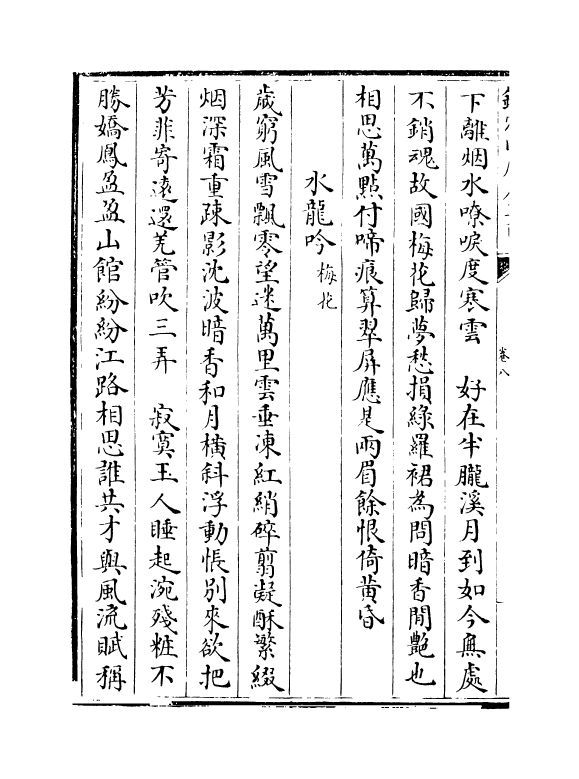 卷八
下離烟水嘹唳度寒雲　好在半朧溪月到如今無處
不銷魂故國梅花歸夢愁損綠羅裙為問暗香閒艷也
相思萬點付啼痕算翠屏應是兩眉餘恨倚黄昏
水龍吟梅花
歲窮風雪飄零望迷萬里雲垂凍紅綃碎剪凝酥繁綴
烟深霜重疎影沈波暗香和月橫斜浮動悵别來欲把
芳菲寄逺還羌管吹三弄　寂寞玉人睡起涴殘粧不
勝嬌鳳盈盈山館紛紛江路相思誰共才與風流賦稱